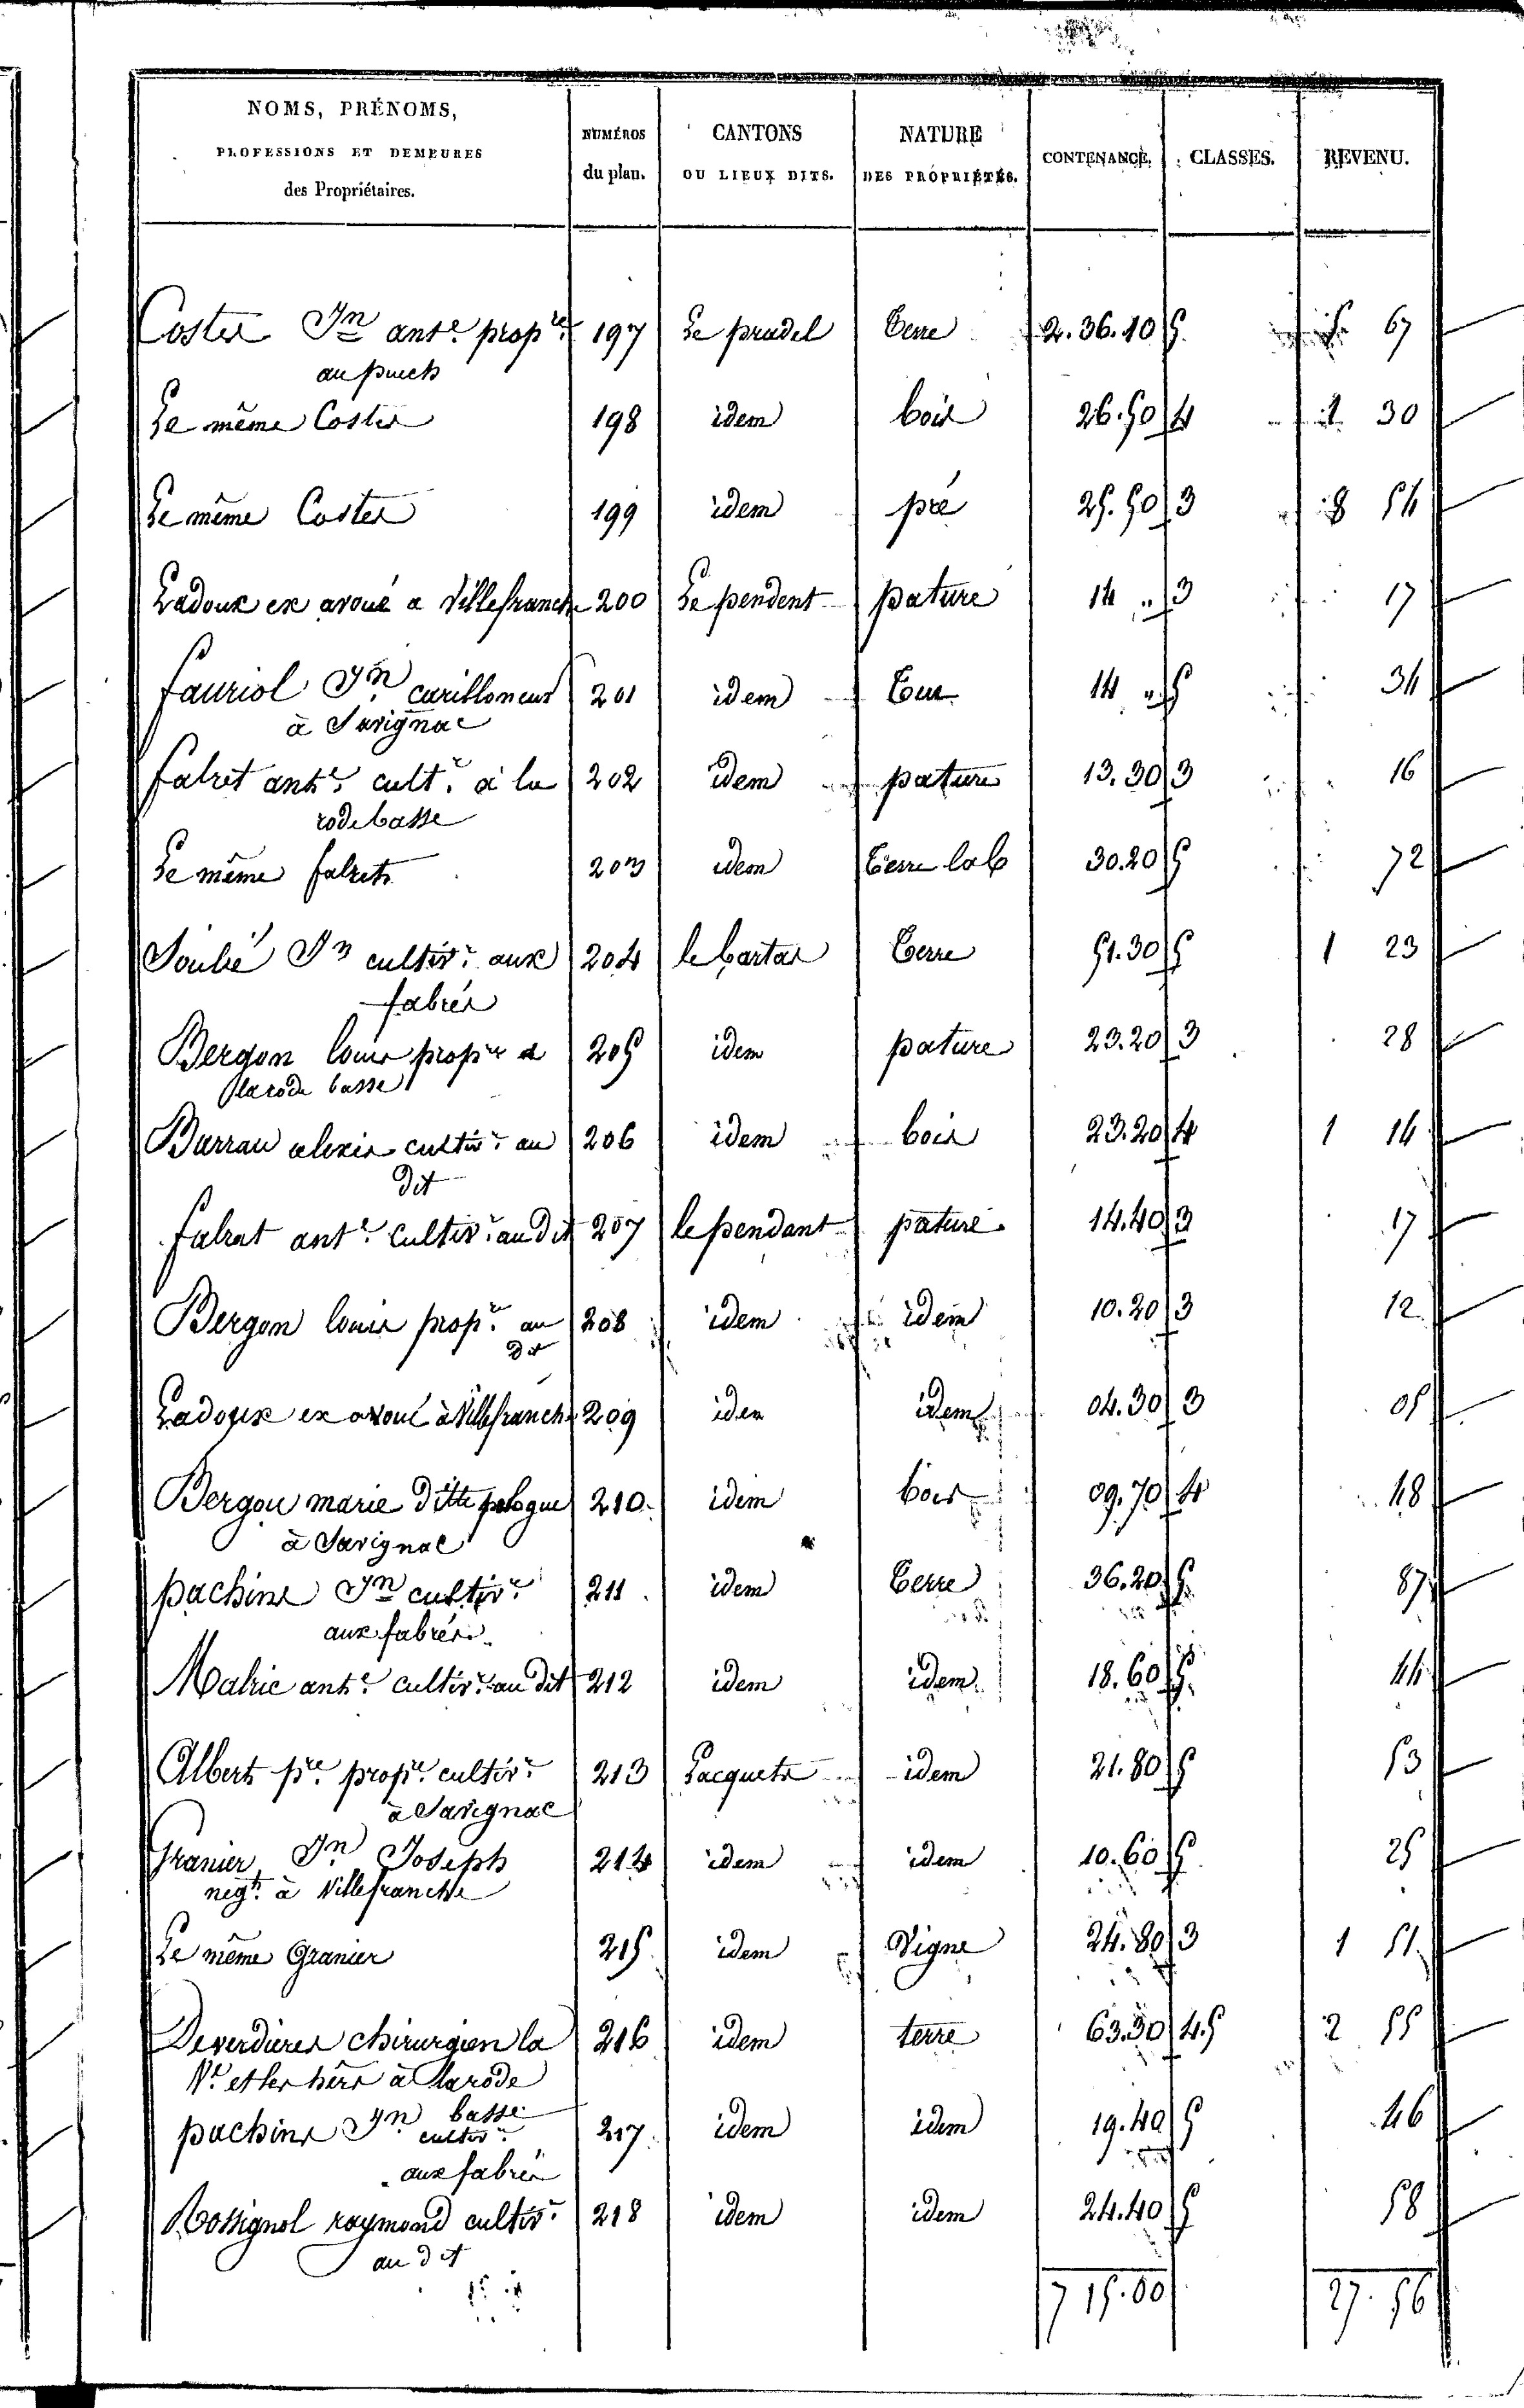 NOMS, PRÉNOMS,
PROFESSIONS ET DEMEURES
des Propriétaires.
NUMÉROS
du plan.
CANTONS
OU LIEUX DITS.
NATURE
DES PROPRIÉTÉS.
CONTENANCE.
CLASSES.
REVENU.
Coster Jn ante propre 197 Le pradel Terre 2.36.10 5 5 67
au puech
Le même Coster 198 idem bois 26.50 4 1 30
Le même Coster 199 idem pré 25.50 3 8 54
Ladoux ex avoué a Villefranche 200 Le pendent pature 14 " 3 17
fauriol Jn carilloneur 201 idem Terre 14 " 5 34
à Savignac
falret ante cultr à la 202 idem pature 13.30 3 16
rode basse
Le même falret 203 idem Terre lab 30.20 5 72
Soulié Jn cultivr aux 204 le bartas Terre 51.30 5 1 23
fabrés
Bergon louis propre a 205 idem pature 23.20 3 28
larode basse
Burrau alexis cultivr au 206 idem bois 23.20 4 1 14
dit
falrat ante cultivr au dit 207 le pendant pature 14.40 3 17
Bergon louis propre au 208 idem idem 10.20 3 12
dit
Ladoux ex avoué à Villefranche 209 idem idem 04.30 3 05
Bergou marie ditte 210 idem bois 09.70 4 48
à Savignac
pachins Jn cultivr 211 idem Terre 36.20 5 87
aux fabrés
Malric ante cultivr au dit 212 idem idem 18.60 5 44
Albert pre propre cultivr 213 Lacquets idem 21.80 5 53
à Savignac
Granier Jn Joseph 214 idem idem 10.60 5 25
negt à Villefranche
Le même Granier 215 idem Vigne 24.80 3 1 51
Deverdieres chirurgien la 216 idem terre 63.30 4.5 2 55
Ve et les hérs à larode
basse
pachins Jn cultivr 217 idem idem 19.40 5 46
aux fabrés
Rossignol raymond cultivr 218 idem idem 24.40 5 58
au dit
7 15.00 27.56